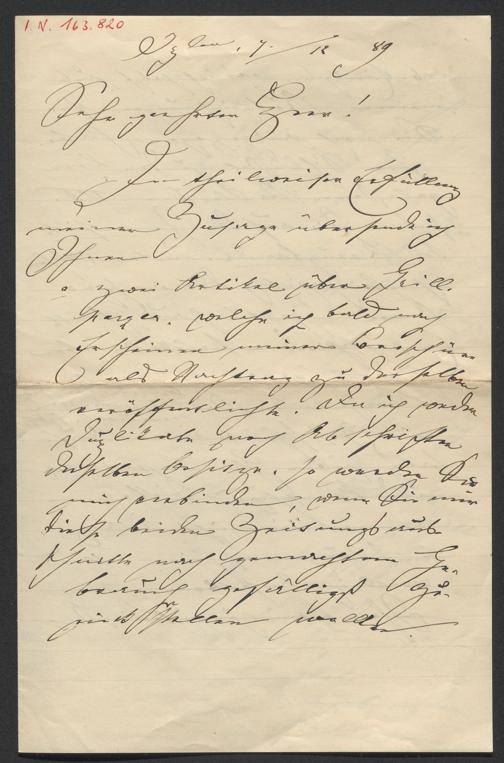 I. N. 163.820
7./12 89
Sehr geehrter Herr!
In theilweiser Erfüllung
meiner Zusage übersende ich
Ihnen
zwei Artikel über Grill-
parzer, welche ich bald nach
Erscheinen meiner Broschüre
als Nachtrag zu derselben
veröffentlichte. Da ich weder
Duplikate noch Abschriften
derselben besitze, so werden Sie
mich verbinden, wenn Sie mir
diese beiden Zeitungsaus-
schnitte nach gemachtem Ge-
brauch gefälligst zu-
rückstellen wollen.